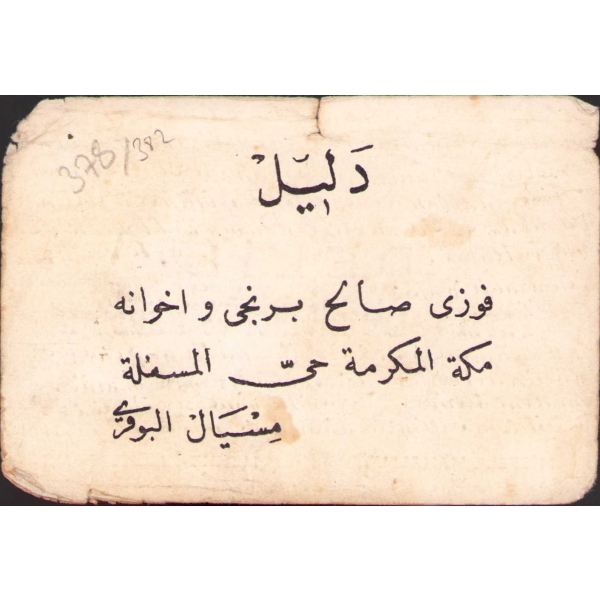 378/382
دَلِيّلْ
فوزى صالح برنجى و اخوانه
مكة المكرمة حىّ المسفلة
مِسْيَالْ البوقرى